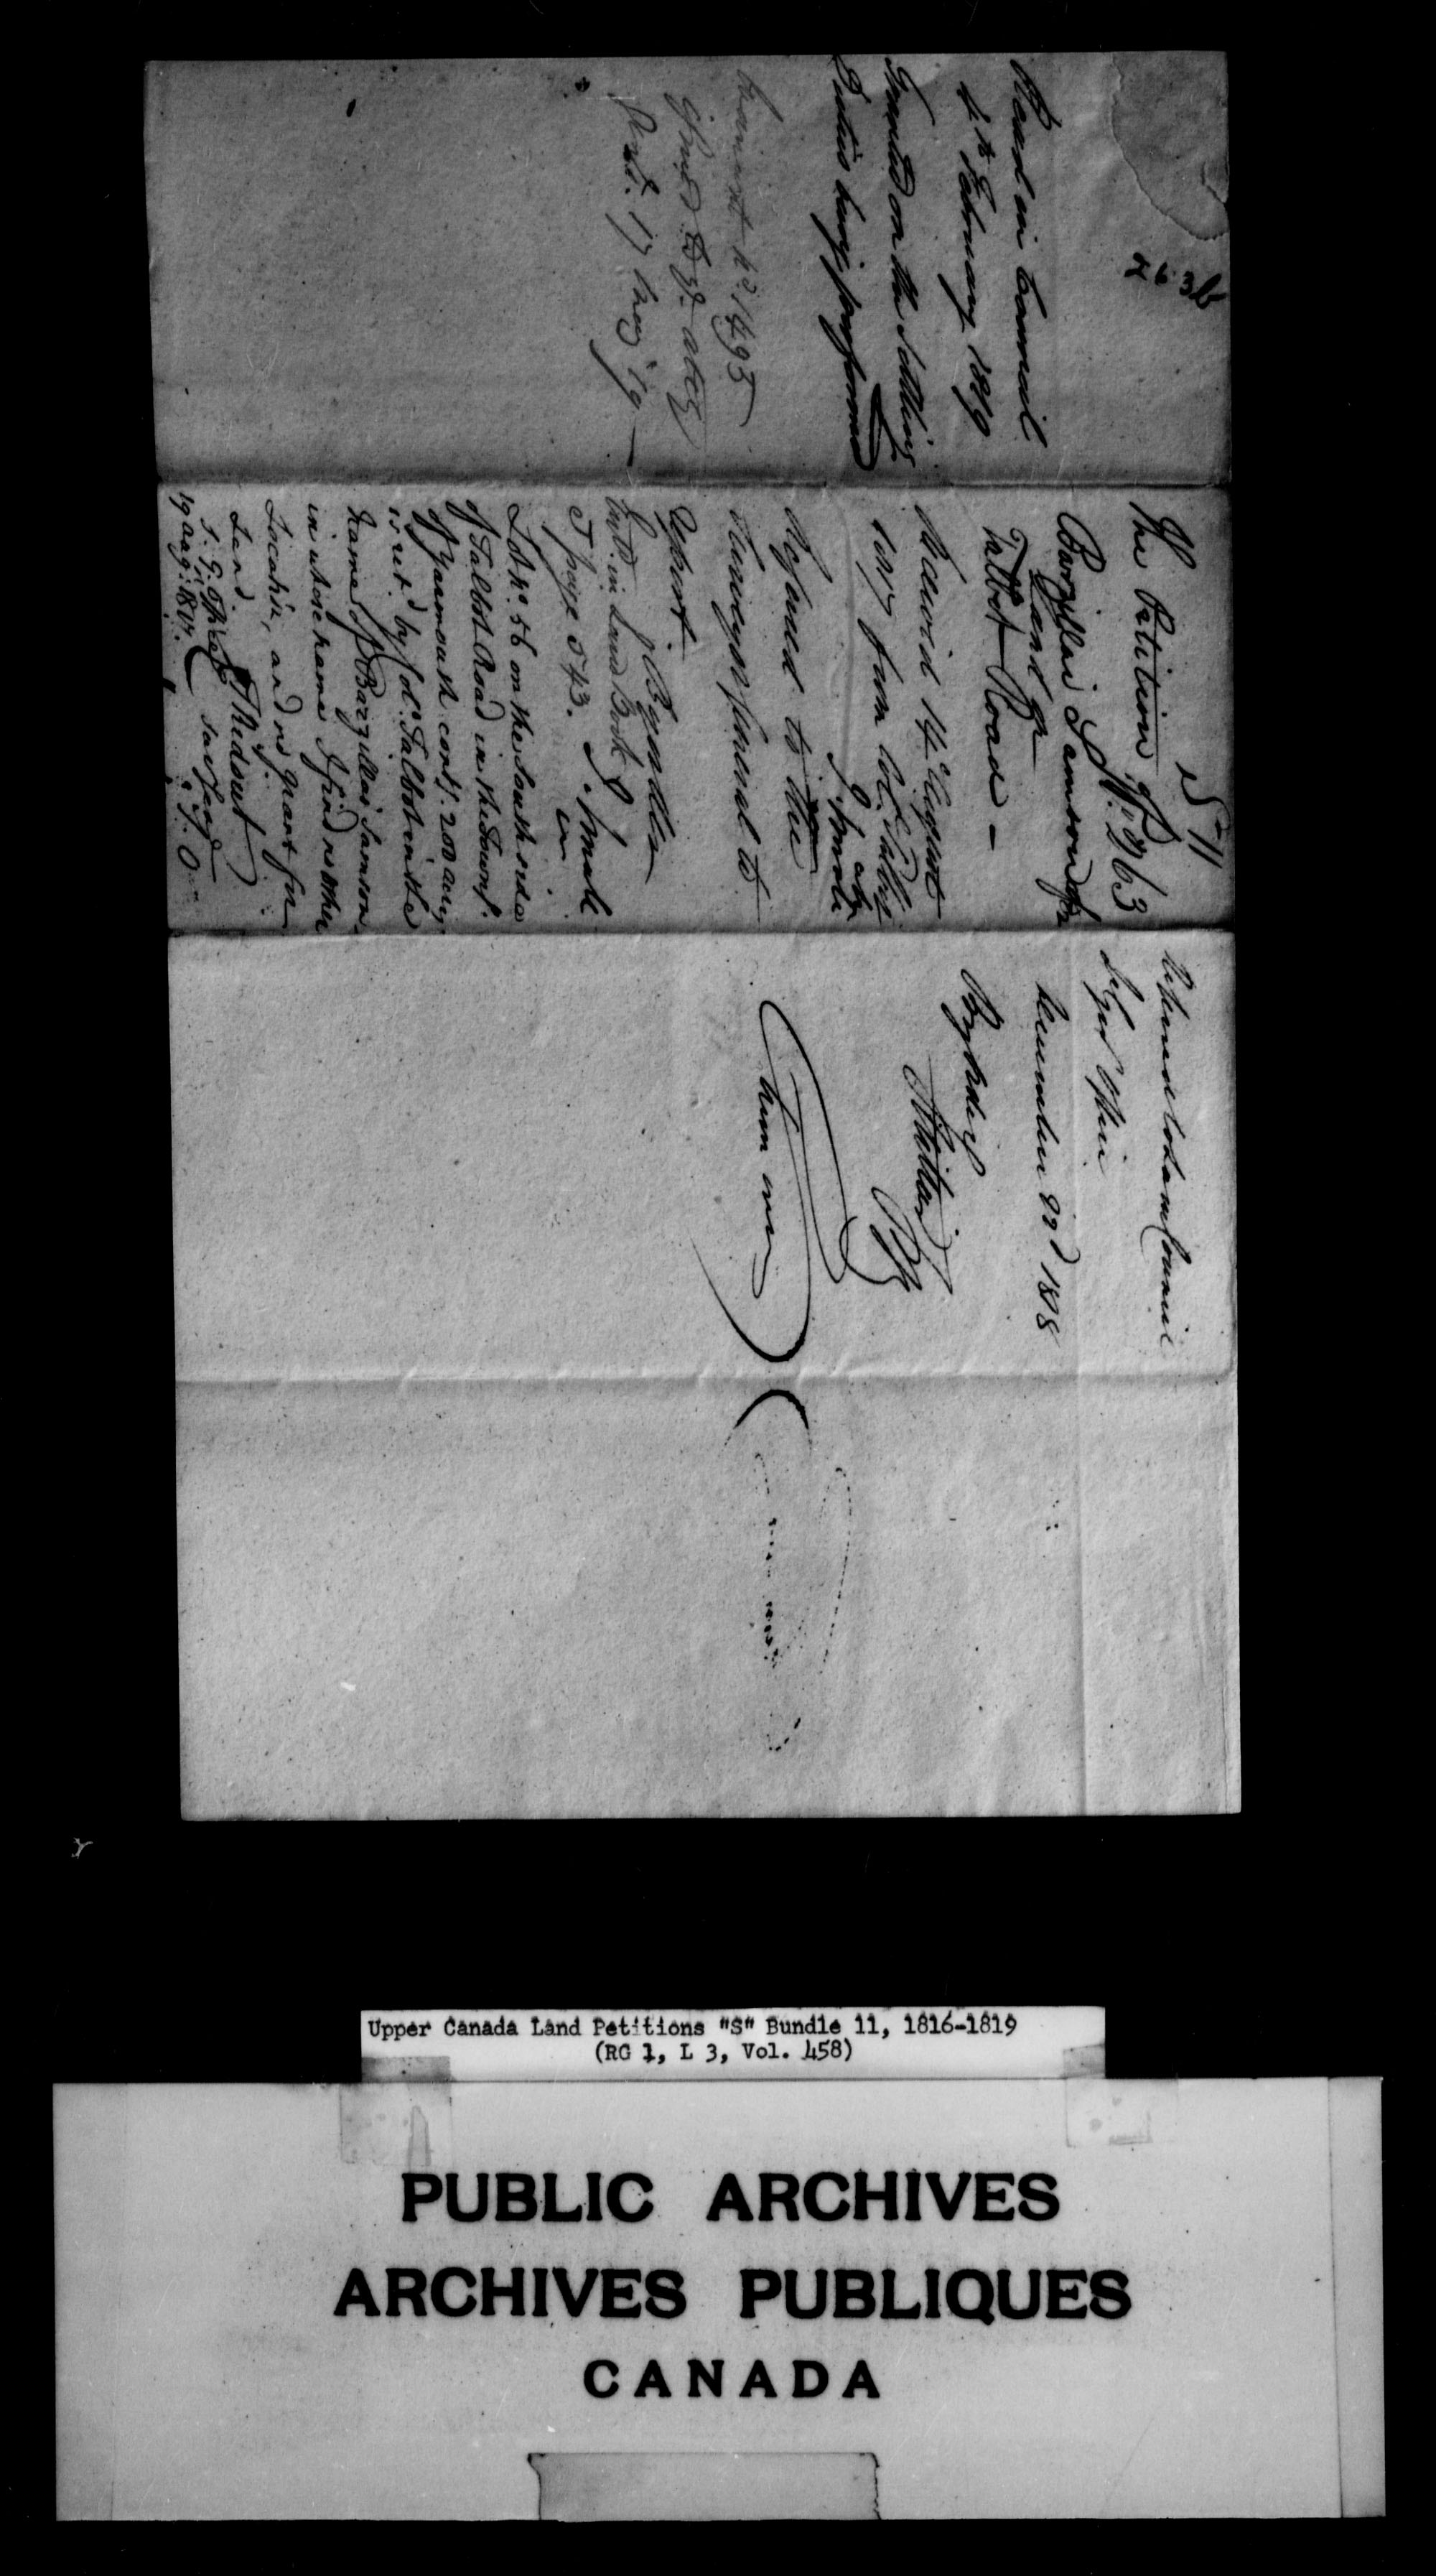 263b
Read in Council
4th February 1819
Granted on the Settling
Duties being performed
Warrant No 1495
Issd. 17 May '19
S-11
No. 263
The Petition of
Barzillai Samson for
Land on
Talbot Road -
Received 14 August
1817 from Col. Talbot
Refered to the
Surveyor General to
report
By order
Entd. in Land Book
J page 543.
J. Small
Lot No. 56 on the South side
of Talbot Road in the Township
of Yarmouth contg. 200 acres
is retd. by Col. Talbot in the
Name of Barzillai Samson
in whose name I find no other
Location, and no grant for
Land
Thos. Ridout
Surv. Genl.
S. G. Office
19 Aug. 1817.
Referred to
December 22d 1818
By order of
Upper Canada Land Petitions "S" Bundle 11, 1816-1819
(RG 1, L 3, Vol. 458)
PUBLIC ARCHIVES
ARCHIVES PUBLIQUES
CANADA